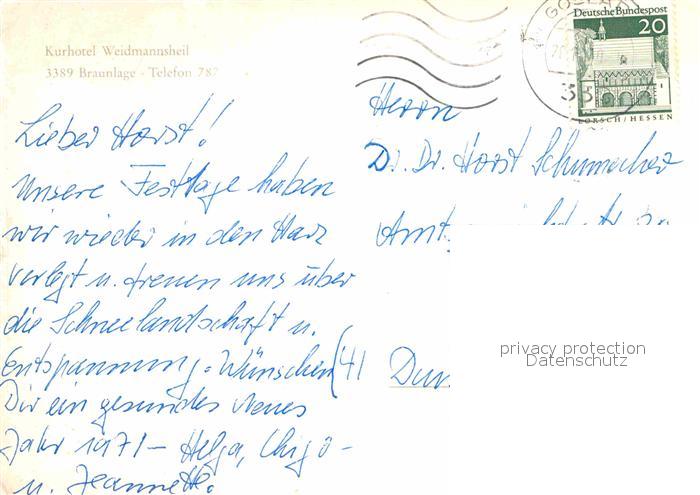 Kurhotel Weidmannsheil
3389 Braunlage · Telefon 787
Deutsche Bundespost
20
LORSCH/HESSEN
Lieber Horst!
Unsere Festtage haben
wir wieder in den Harz
verlegt u. freuen uns über
die Schneelandschaft u.
Entspannung. Wünschen
Dir ein gesundes Neues
Jahr 1971 – Helga,
u. Jeannette.
Herrn
Dr. Dr. Horst Schumacher
Amt
(41 Dur
privacy protection
Datenschutz